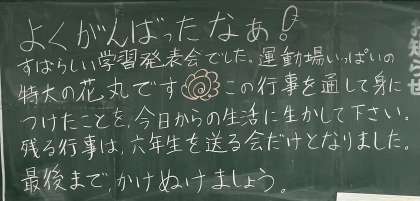 よくがんばったなぁ!
すばらしい学習発表会でした。運動場いっぱいの
特大の花丸です この行事を通して身に
つけたことを、今日からの生活に生かして下さい。
残る行事は、六年生を送る会だけとなりました。
最後まで、かけぬけましょう。